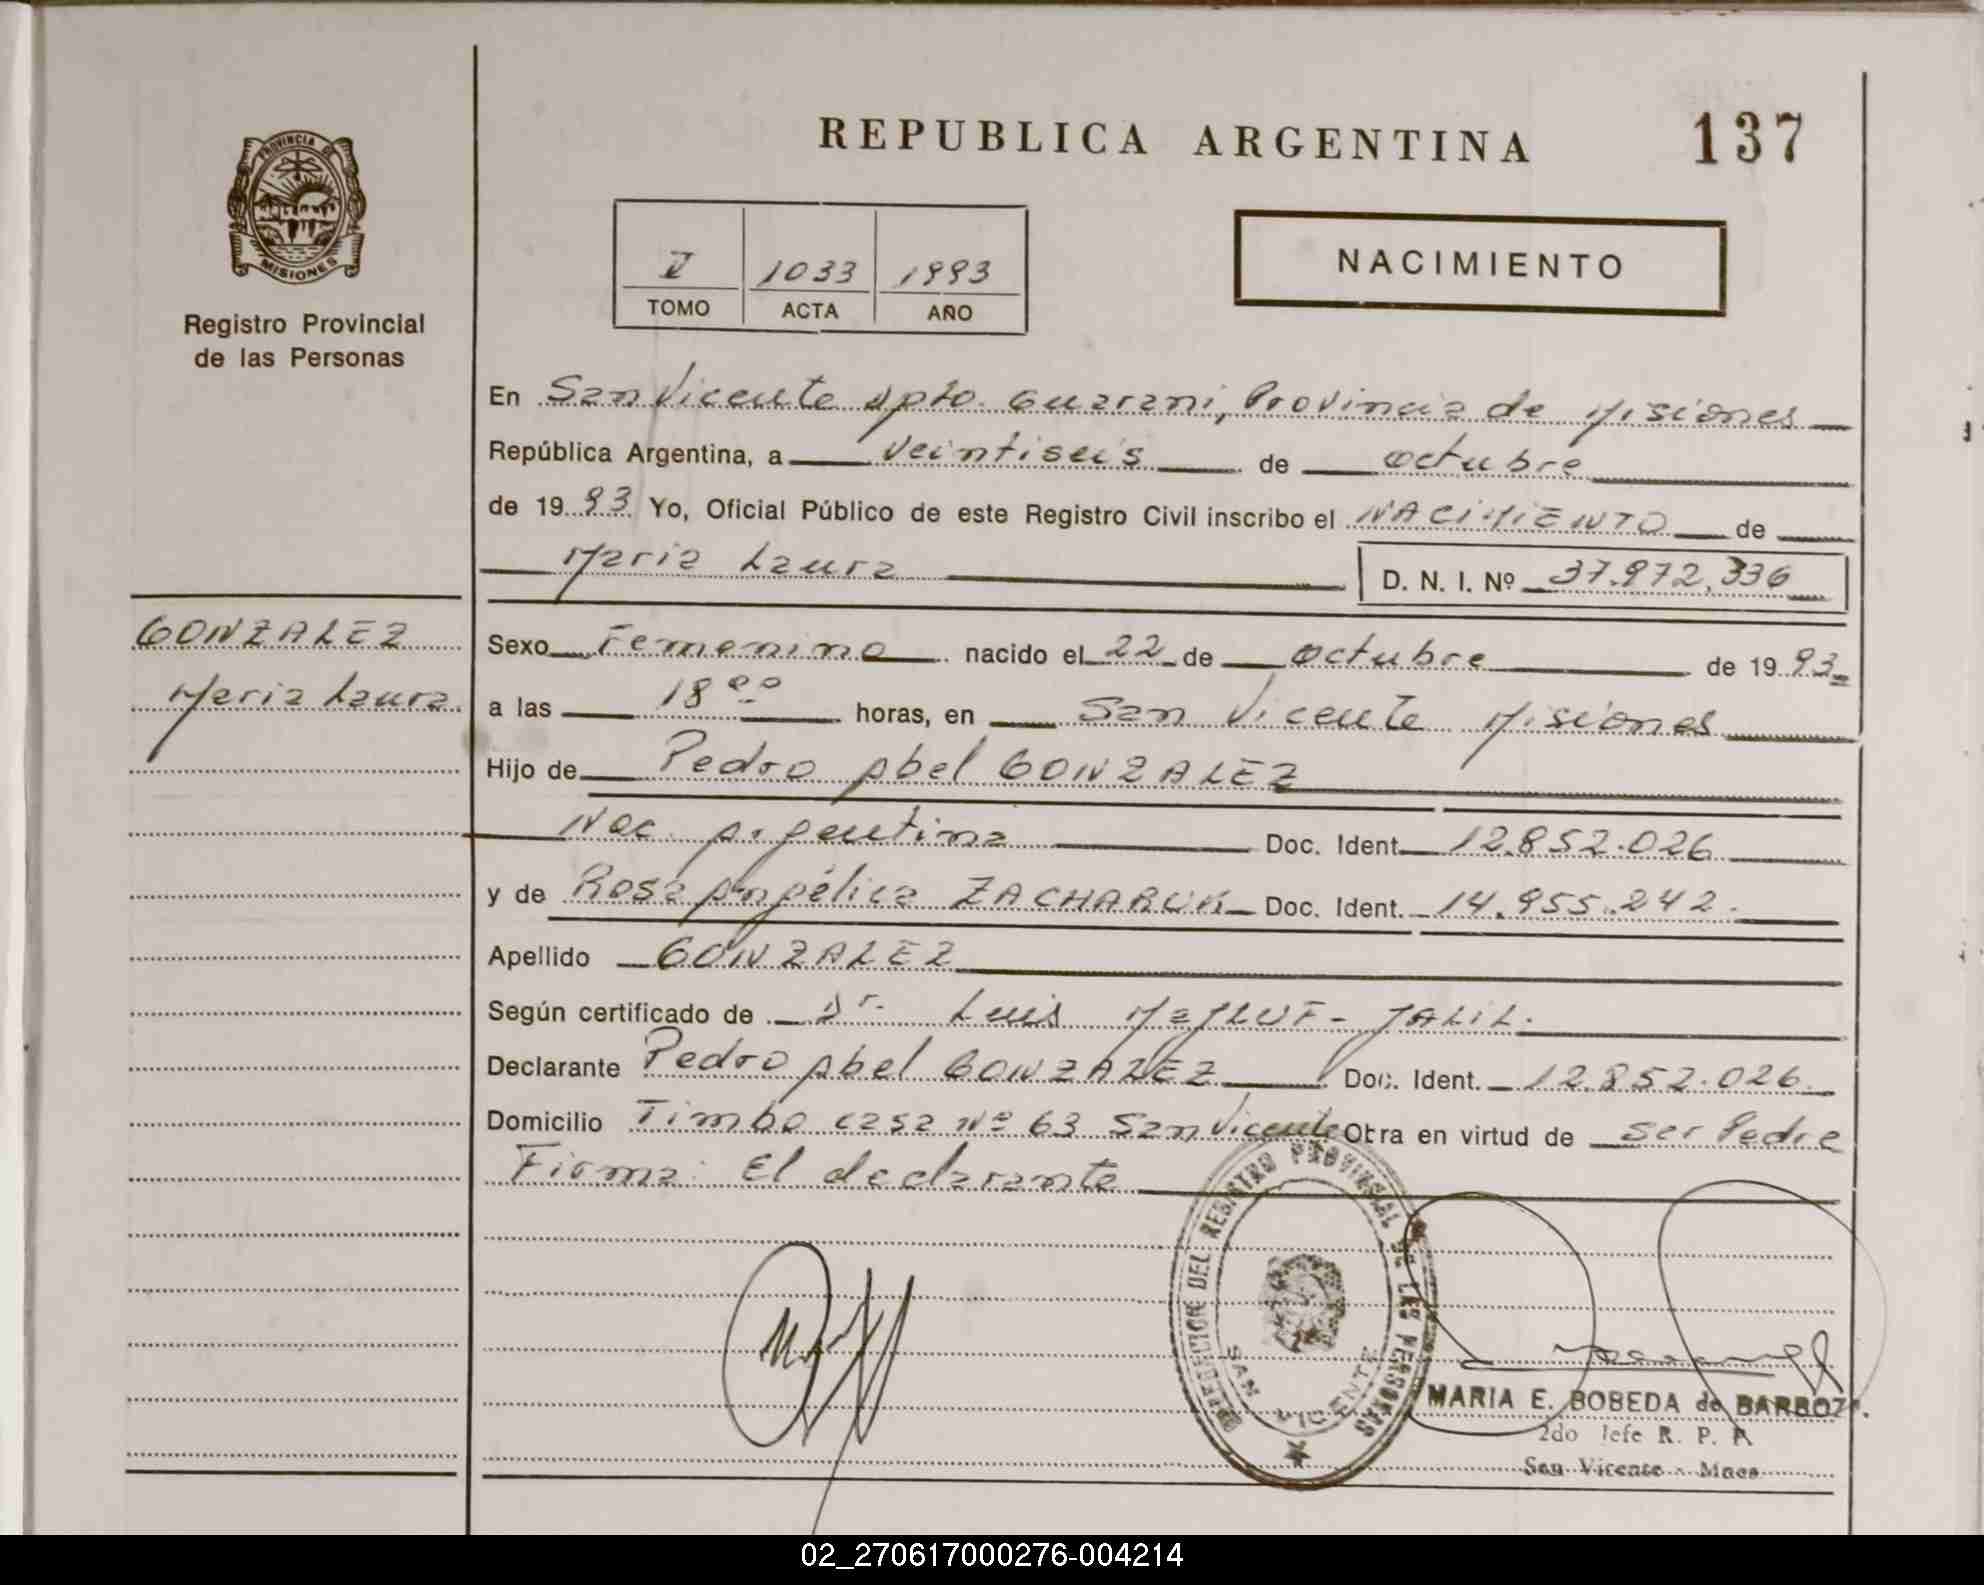 REPUBLICA ARGENTINA
137
PROVINCIA DE
MISIONES
Registro Provincial
de las Personas
1033 1993
TOMO ACTA AÑO
NACIMIENTO
En San Vicente Dpto. Guarani, Provincia de Misiones
República Argentina, a veintiseis de octubre
de 1993 Yo, Oficial Público de este Registro Civil inscribo el NACIMIENTO de
Maria Laura D. N. I. Nº 37.972.336
GONZALEZ
Maria Laura
Sexo Femenino nacido el 22 de octubre de 1993
a las 18 00 horas, en San Vicente Misiones
Hijo de Pedro Abel GONZALEZ
Nac. Argentina Doc. Ident. 12.852.026
y de Rosa Angélica ZACHARUK Doc. Ident. 14.955.242.
Apellido GONZALEZ
Según certificado de Dr. Luis MAJLUF - JALIL.
Declarante Pedro Abel GONZALEZ Doc. Ident. 12.852.026
Domicilio Timbo casa Nº 63 San Vicente Obra en virtud de ser Padre
Firma: El declarante
DEL REGISTRO PROVINCIAL DE LAS PERSONAS
SAN VICENTE
MARIA E. BOBEDA de BARBOZA
2do Jefe R. P. P.
San Vicente - Mnes
02_270617000276-004214